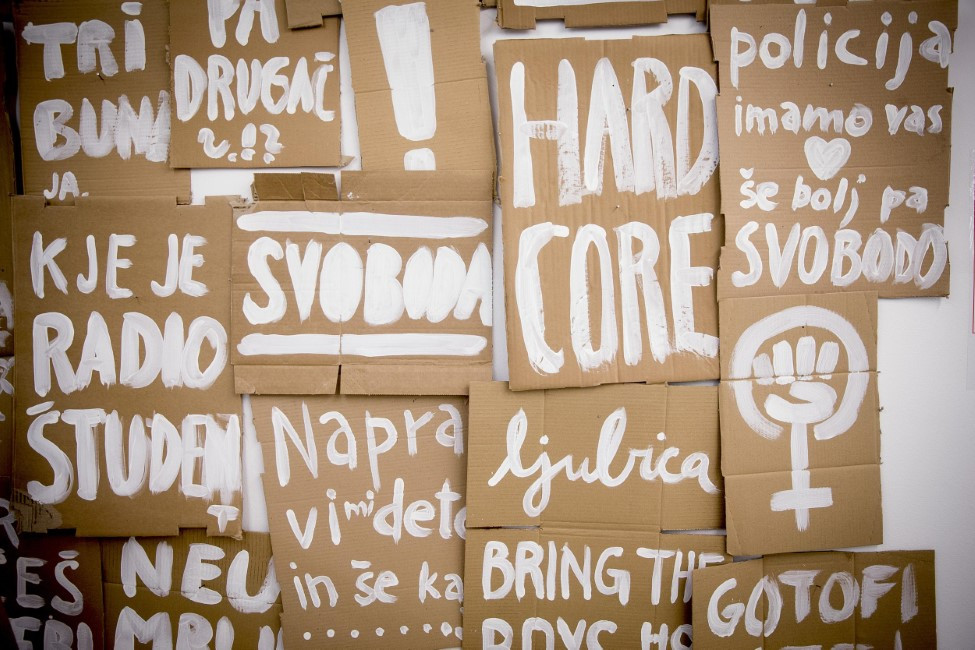 TRI
BUNA
JA.
PA
DRUGAČ
?!?
!
HARD
CORE
policija
imamo vas
še bolj pa
SVOBODO
KJE JE
RADIO
ŠTUDENT
SVOBODA
Napra
vi mi deto
in še ka
ljubica
BRING THE
BOYS HO
GOTOFI
EŠ
NEU
MBLJ